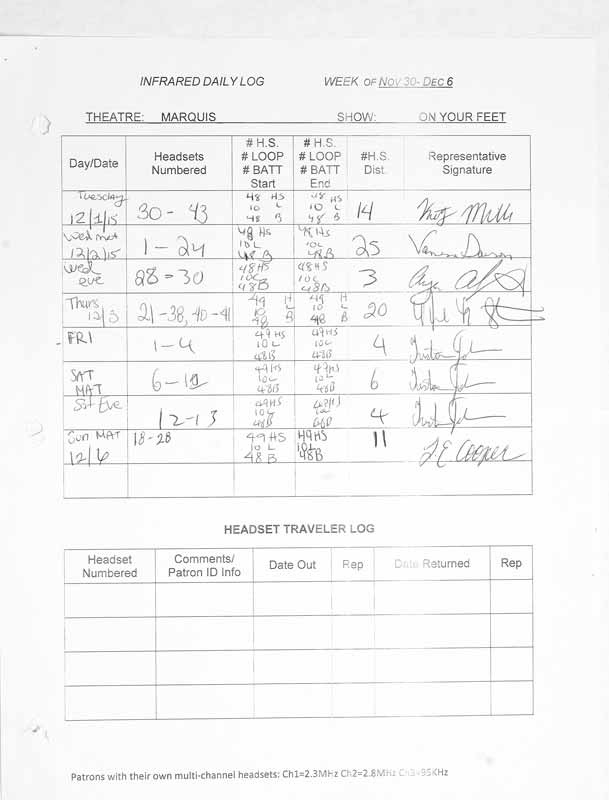 INFRARED DAILY LOG WEEK OF NOV 30- DEC 6
THEATRE: MARQUIS SHOW: ON YOUR FEET
Day/Date Headsets Numbered # H.S. # LOOP # BATT Start # H.S. # LOOP # BATT End #H.S. Dist. Representative Signature
Tuesday 12/1/15 30 - 43 48 HS 10 L 48 B 48 HS 10 L 48 B 14
Wed mat 12/2/15 1 - 24 48 HS 10L 48 B 48 HS 10L 48B 25
Wed eve 28 - 30 48HS 10L 48B 48HS 10L 48B 3
Thurs 12/3 21 - 38, 40 - 41 49 H 10 L 48 B 49 H 10 L 48 B 20
FRI 1 - 4 49HS 10L 48B 49HS 10L 48B 4
SAT MAT 6 - 49HS 10L 48B 49HS 10L 48B 6
Sat Eve 12 - 13 49HS 10L 48B 49HS 4
Sun MAT 12/6 18 - 28 49HS 10 L 48B 49HS 10L 48B 11 J.E. Cooper
HEADSET TRAVELER LOG
Headset Numbered Comments/ Patron ID Info Date Out Rep Date Returned Rep
Patrons with their own multi-channel headsets: Ch1=2.3MHz Ch2=2.8MHz Ch3=95KHz